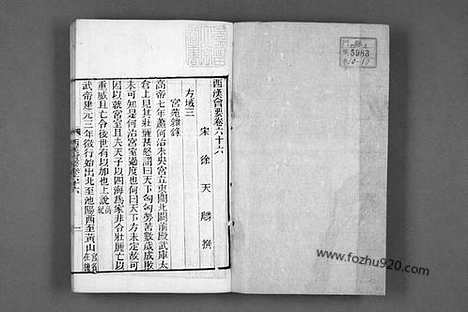 西漢會要卷六十六
宋 徐 天 麟 撰
方域三
宮苑雜錄
高帝七年蕭何治未央宮立東闕北闕前殿武庫太
倉上見其壯麗甚怒謂何曰天下匈匈勞苦數歲成敗
未可知是何治宮室過度也何曰天下方未定故可
因以就宮室且夫天子以四海爲家非令壯麗亡以
重威且亡令後世有以加也上說
武帝建元三年微行始出北至池陽西至黃山
5983
www.fozhu920.com